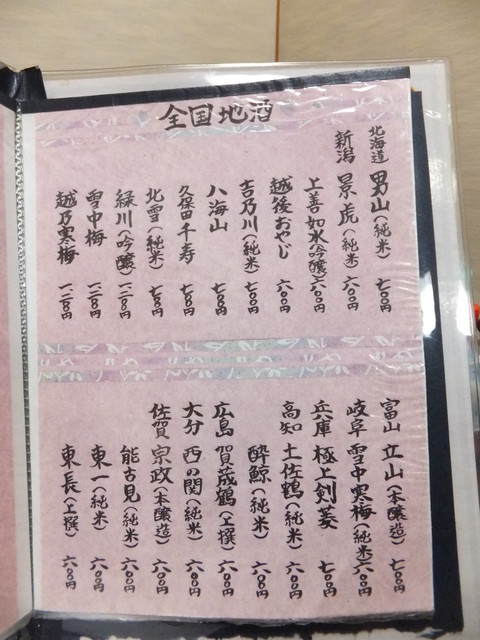 全国地酒
北海道 男山(純米) 七〇〇円
新潟 景虎(純米) 六〇〇円
上善如水(吟醸) 六〇〇円
越後おやじ 六〇〇円
吉乃川(純米) 七〇〇円
八海山 七〇〇円
久保田千寿 七〇〇円
北雪(純米) 七〇〇円
緑川(吟醸) 一、二〇〇円
雪中梅 一、二〇〇円
越乃寒梅 一、二〇〇円
富山 立山(本醸造) 七〇〇円
岐阜 雪中寒梅(純米) 六〇〇円
兵庫 極上剣菱 七〇〇円
高知 土佐鶴(純米) 六〇〇円
酔鯨(純米) 六〇〇円
広島 賀茂鶴(上撰) 六〇〇円
大分 西の関(純米) 六〇〇円
佐賀 宗政(本醸造) 六〇〇円
能古見(純米) 六〇〇円
東一(純米) 六〇〇円
東長(上撰) 六〇〇円